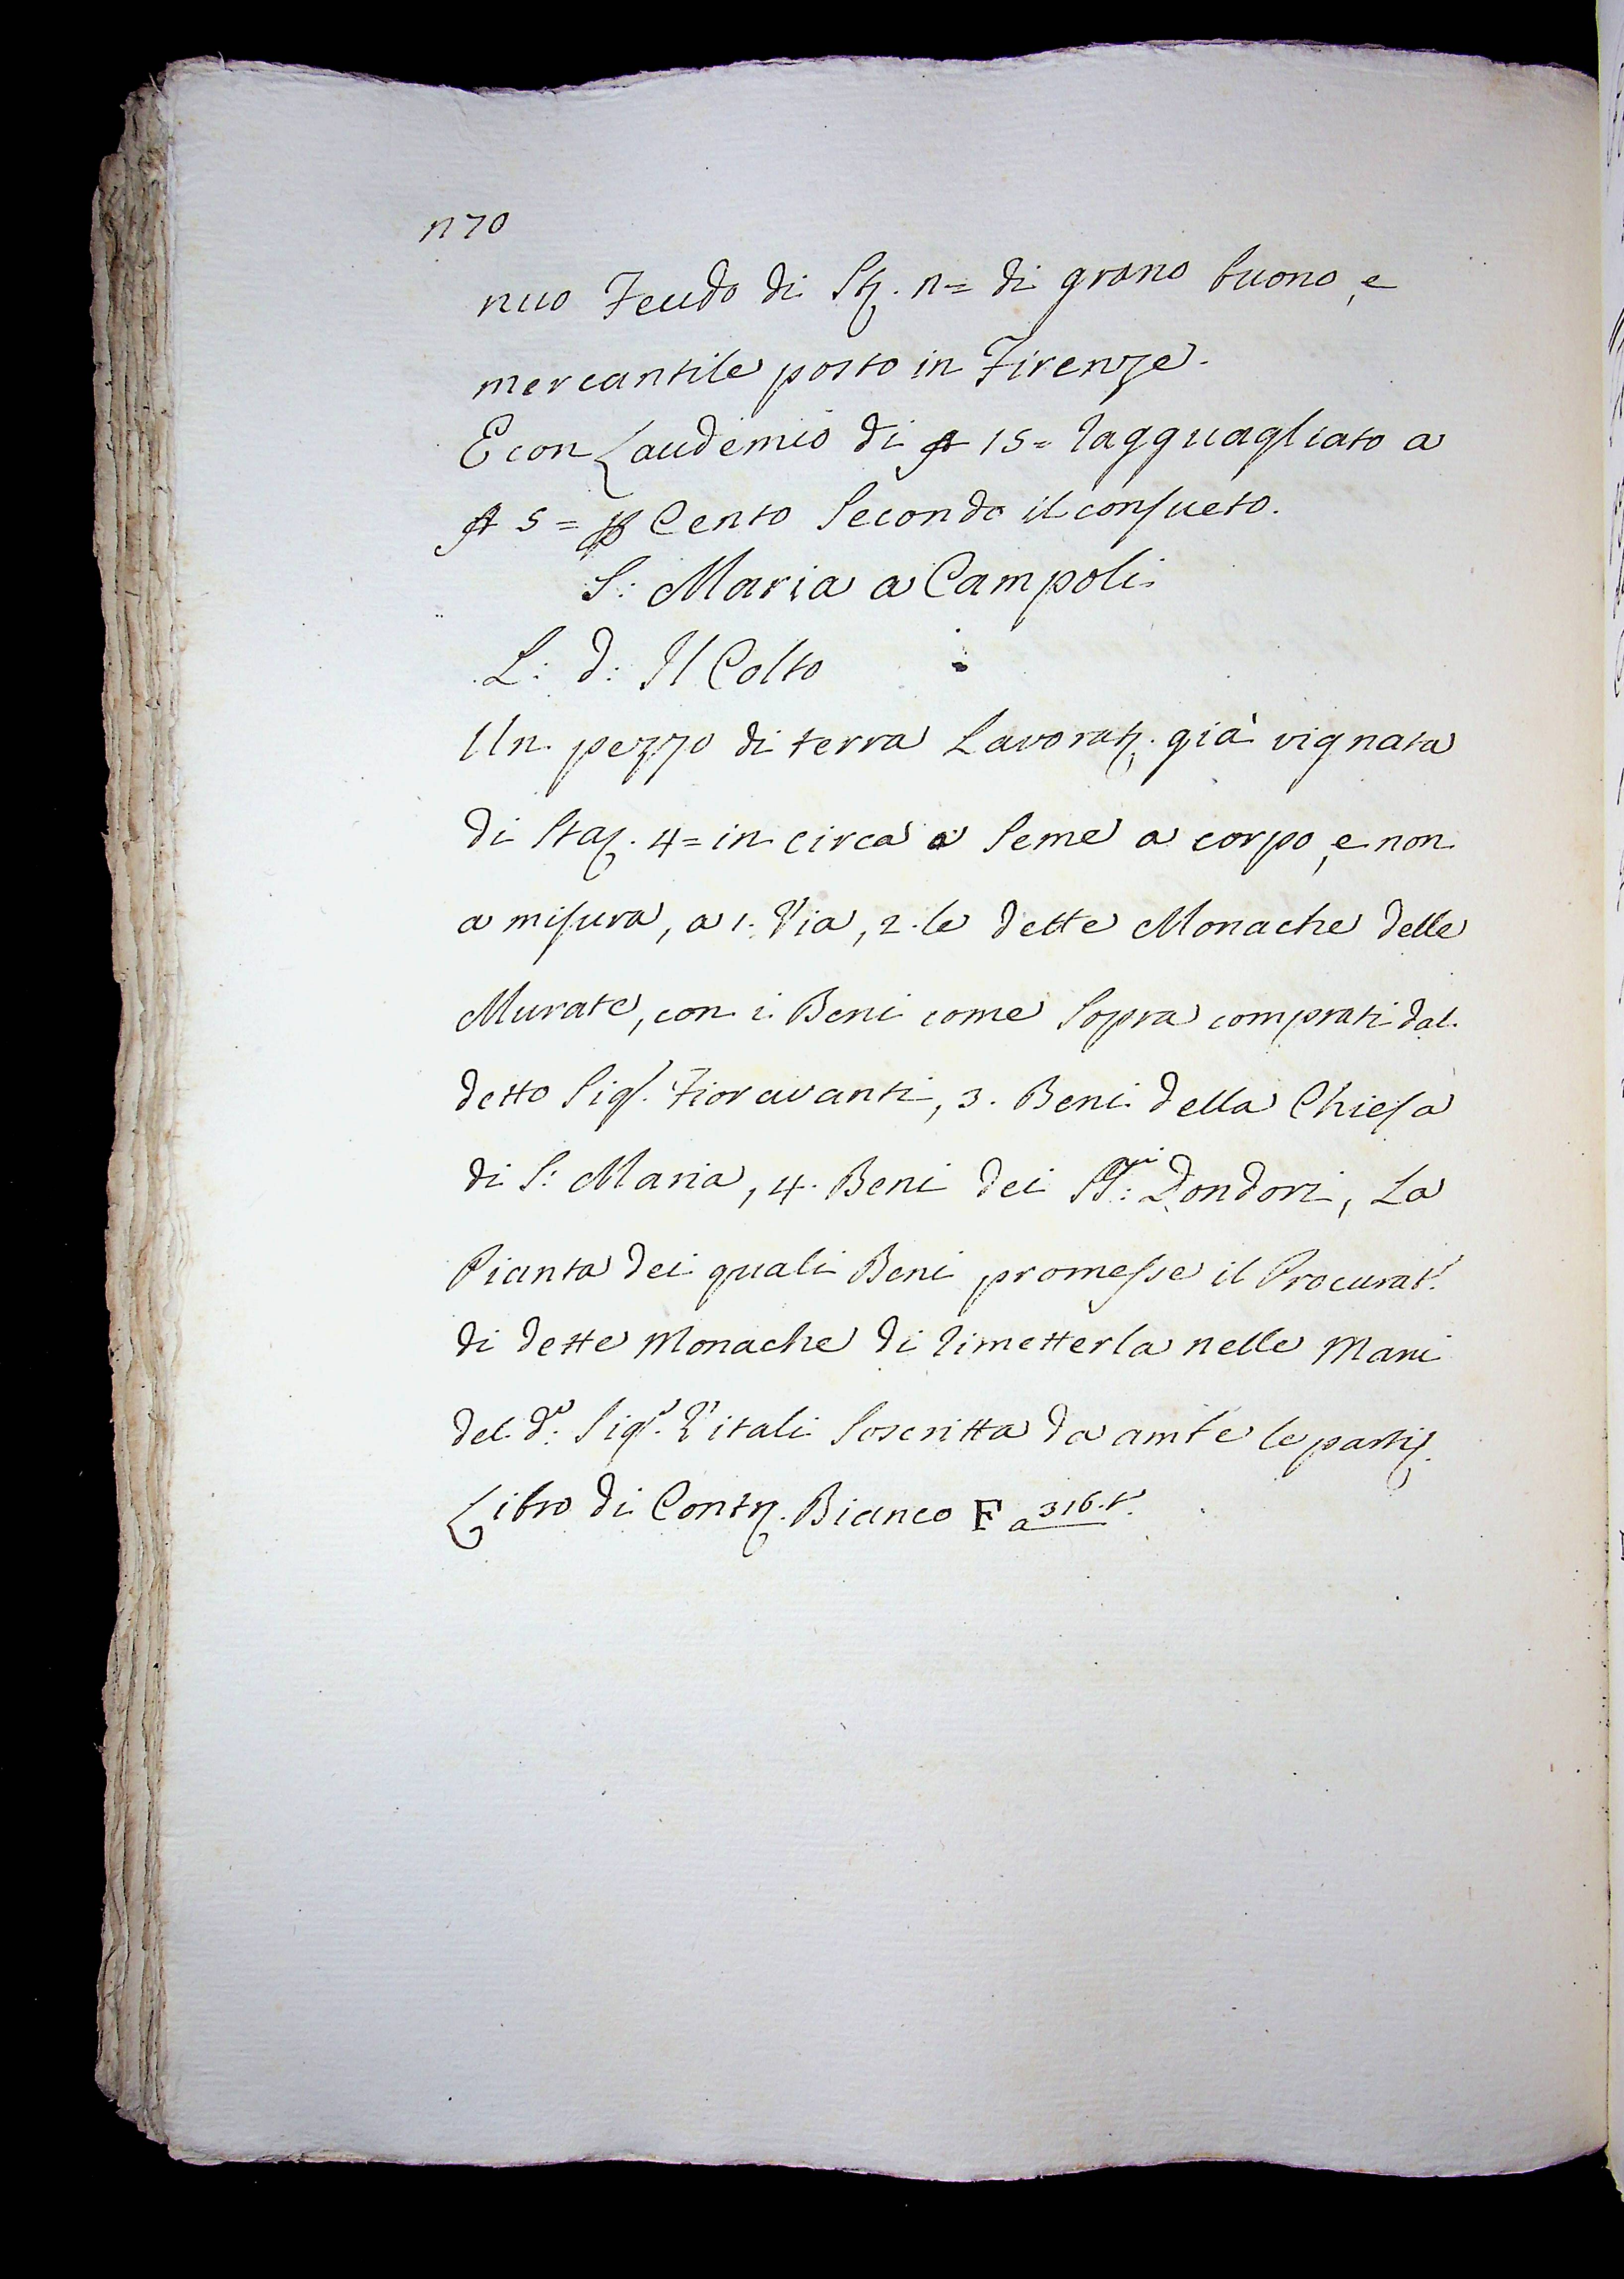 1170
nuo Feudo di St. 11= di grano buono, e
mercantile posto in Firenze.
E con Laudemio di 15= Ragguagliato a
5= p Cento Secondo il consueto.
S: Maria a Campoli
L: d: Il Colto
Un pezzo di terra Lavorat. già vignata
di Sta. 4= in circa a Seme a corpo, e non
a misura, a 1. Via, 2. le dette Monache delle
Murate, con i Beni come Sopra comprati dal
detto Sigr. Fioravanti, 3. Beni della Chiesa
di S: Maria, 4. Beni dei SSri: Dondori, La
Pianta dei quali Beni promesse il Procuratr.
di dette Monache di Rimetterla nelle Mani
del do: Sigr. Vitali Soscritta da ambe le parti.
Libro di Contr. Bianco F a 316. t.